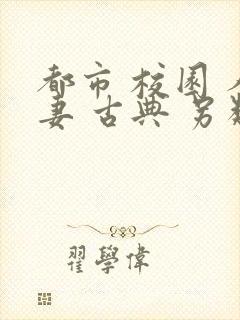 都市校园
妻古典另
翟學偉